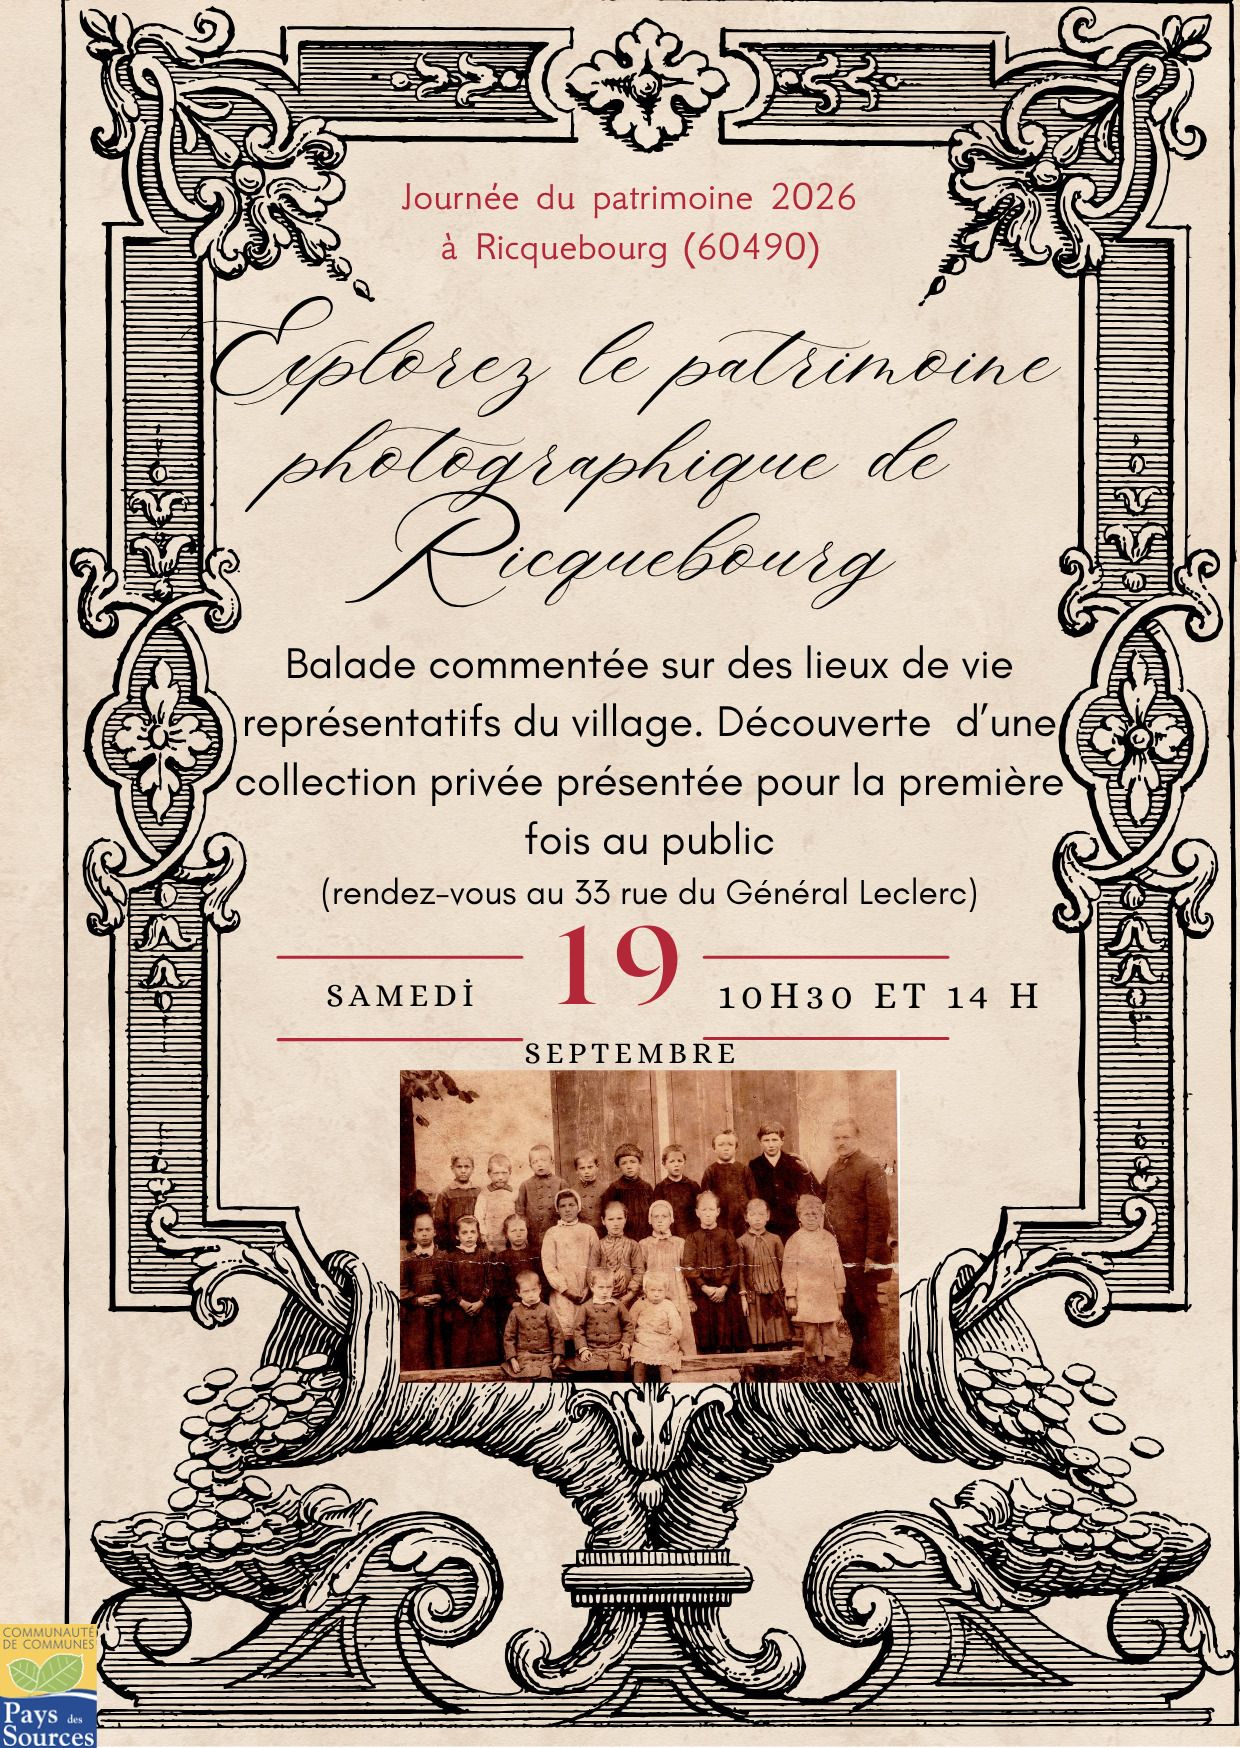 Journée du patrimoine 2026
à Ricquebourg (60490)
Explorez le patrimoine
photographique de
Ricquebourg
Balade commentée sur des lieux de vie
représentatifs du village. Découverte d’une
collection privée présentée pour la première
fois au public
(rendez-vous au 33 rue du Général Leclerc)
SAMEDİ
19
10H30 ET 14 H
SEPTEMBRE
COMMUNAUTÉ
DE COMMUNES
Pays des
Sources